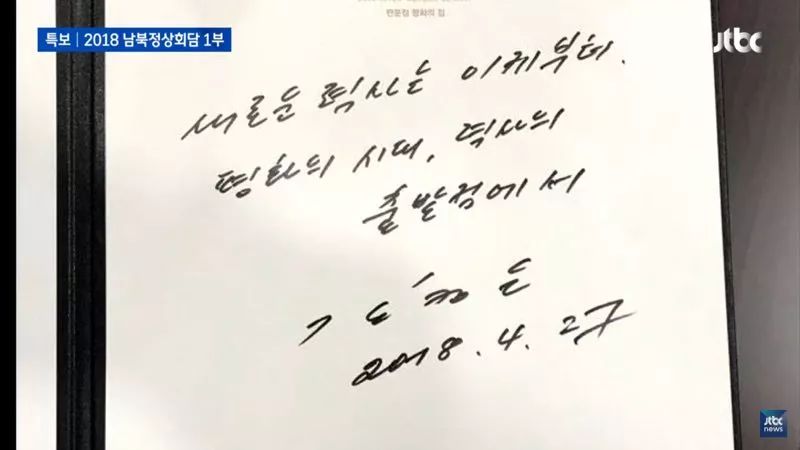 판문점 평화의 집
특보 | 2018 남북정상회담 1부
jtbc
새로운 력사는 이제부터.
평화의 시대, 력사의
출발점에서
김정은
2018.4.27
jtbc
news